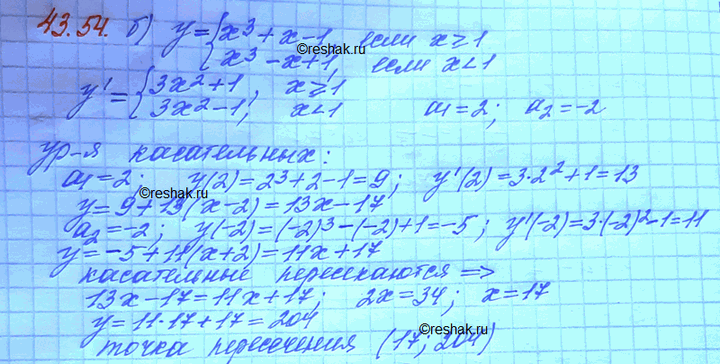 43.54. б) y = { x³ + x - 1, если x ≥ 1
©reshak.ru
x³ - x + 1, если x < 1
y' = { 3x² + 1, x ≥ 1
3x² - 1, x < 1 a₁ = 2; a₂ = -2
ур-я касательных:
©reshak.ru
a₁ = 2; y(2) = 2³ + 2 - 1 = 9; y'(2) = 3·2² + 1 = 13
y = 9 + 13(x - 2) = 13x - 17
a₂ = -2; y(-2) = (-2)³ - (-2) + 1 = -5; y'(-2) = 3·(-2)² - 1 = 11
y = -5 + 11(x + 2) = 11x + 17
касательные пересекаются ⇒
13x - 17 = 11x + 17; 2x = 34; x = 17
y = 11·17 + 17 = 204
©reshak.ru
точка пересечения (17; 204)